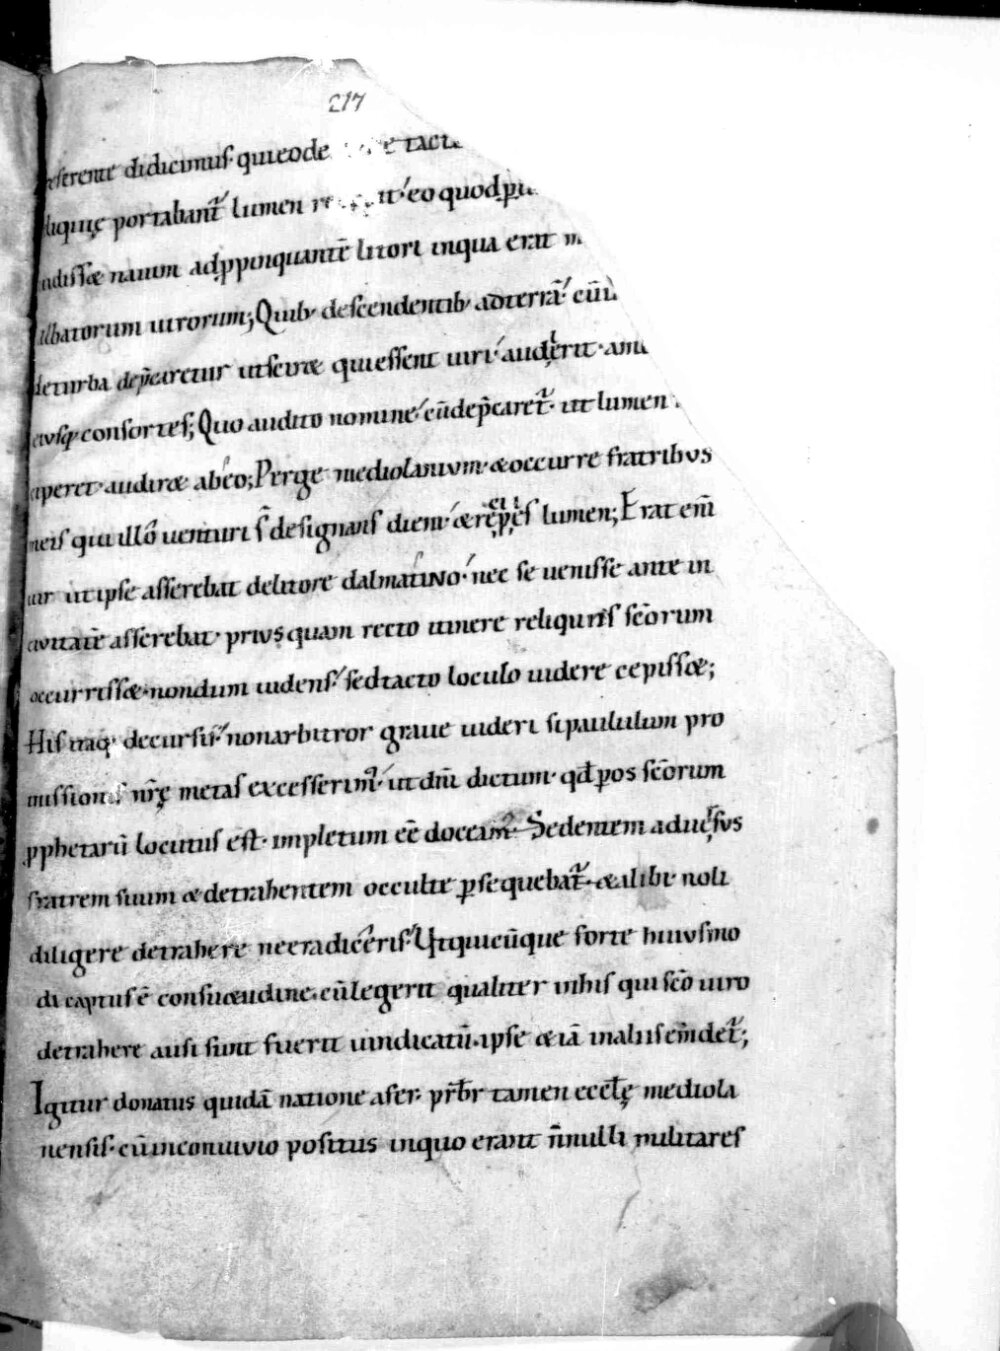 217
referente didicimus· qui eode tacta
liquię portabant᷑ lumen re it· eo quod p̱
uidissæ nauim adp̱pinquantē litori inqua erat m
albatorum uirorum; Quib; descendentib; adterrā· cū
deturba dep̄caretur utsciræ quiessent uiri· audierit· am
eiusq; consortes; Quo audito nomine· cū dep̄caret᷑· ut lumen
reciperet· audiræ ab eo; Perge mediolanium· & occurre fratribus
meis qui illo uenturi s̄ designans diem· & recipies lumen; Erat em̄
uir ut ipse asserebat delitore dalmatino· nec se uenisse ante in
ciuitatē asserebat· priusquam recto itinere reliquiis sc̄orum
occurrissæ· nondum uidens· sed tacto loculo uidere cepissæ;
His itaq; decursis· non arbitror graue uideri si paululum pro
missionis nr̄ę metas excesserim᷑· ut dn̄i dictum· qd̄ p os sc̄orum
p̱phetarū locutus est· impletum eē doceam᷑· Sedentem aduersus
fratrem suum & detrahentem occulte p̱sequebat᷑· & alibi noli
diligere detrahere ne eradiceris· Ut quicūque forte huiusmo
di captus ē consuetudine· cū legerit qualiter inhis qui sc̄o uiro
detrahere ausi sunt fuerit uindicatū· ipse & iā inaliis em̄det᷑;
Igitur donatus quidā natione afer· pr̄b̄r tamen eccl̄ę mediola
nensis· cū inconuiuio positus inquo erant n̄nulli militares